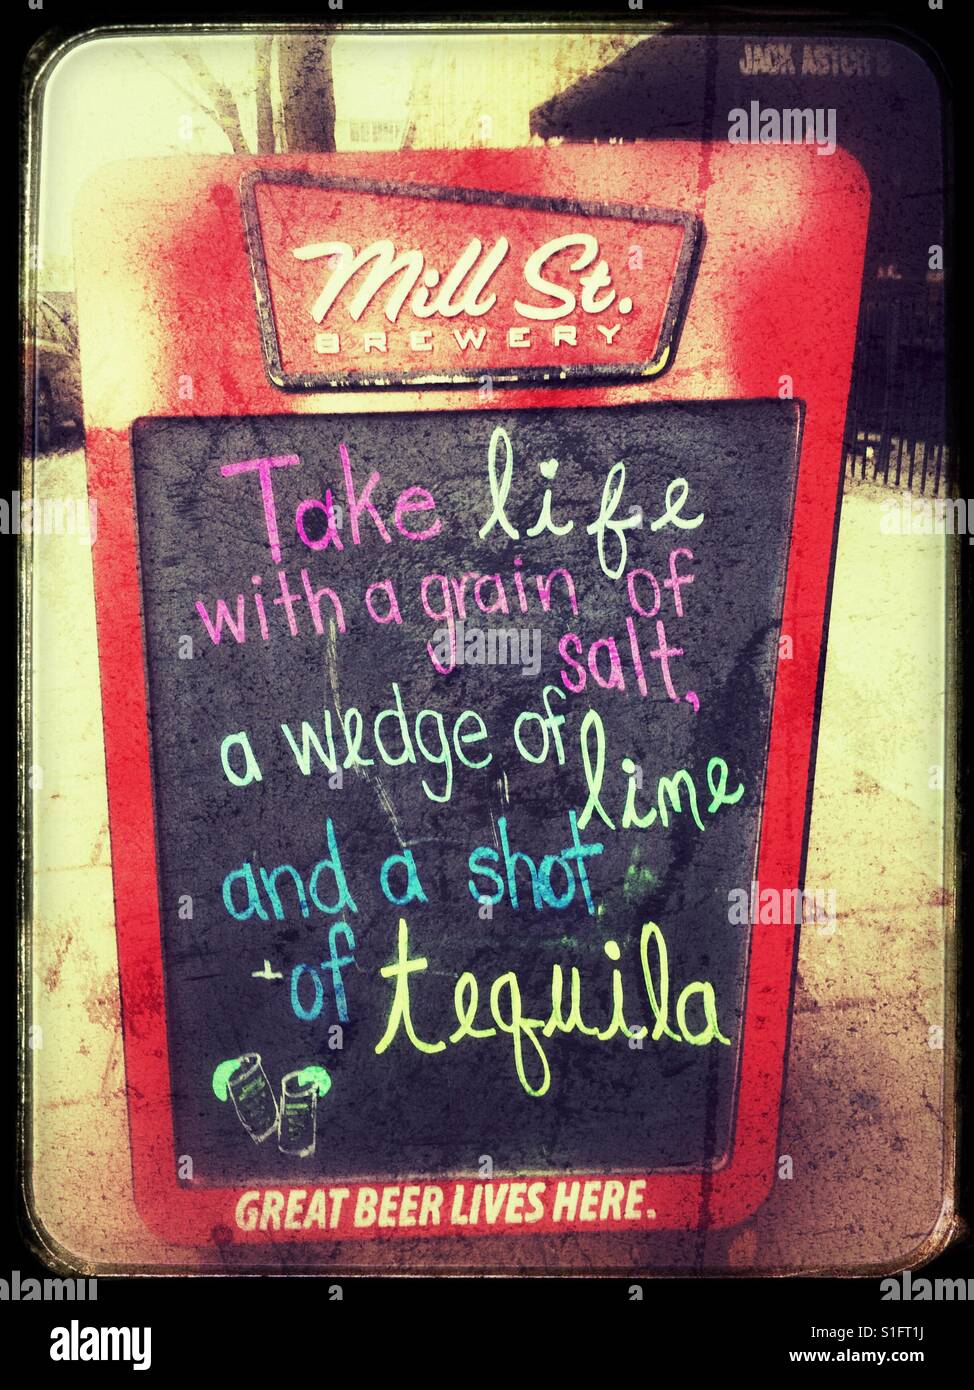 JACK ASTOR'S
Mill St.
BREWERY
Take life
with a grain of
salt,
a wedge of
lime
and a shot
of tequila
GREAT BEER LIVES HERE.
alamy
Image ID: S1FT1J
www.alamy.com